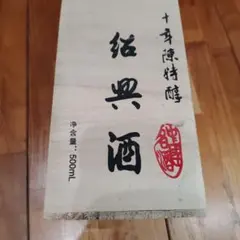 十年陳特醇
紹興酒
净含量：500mL